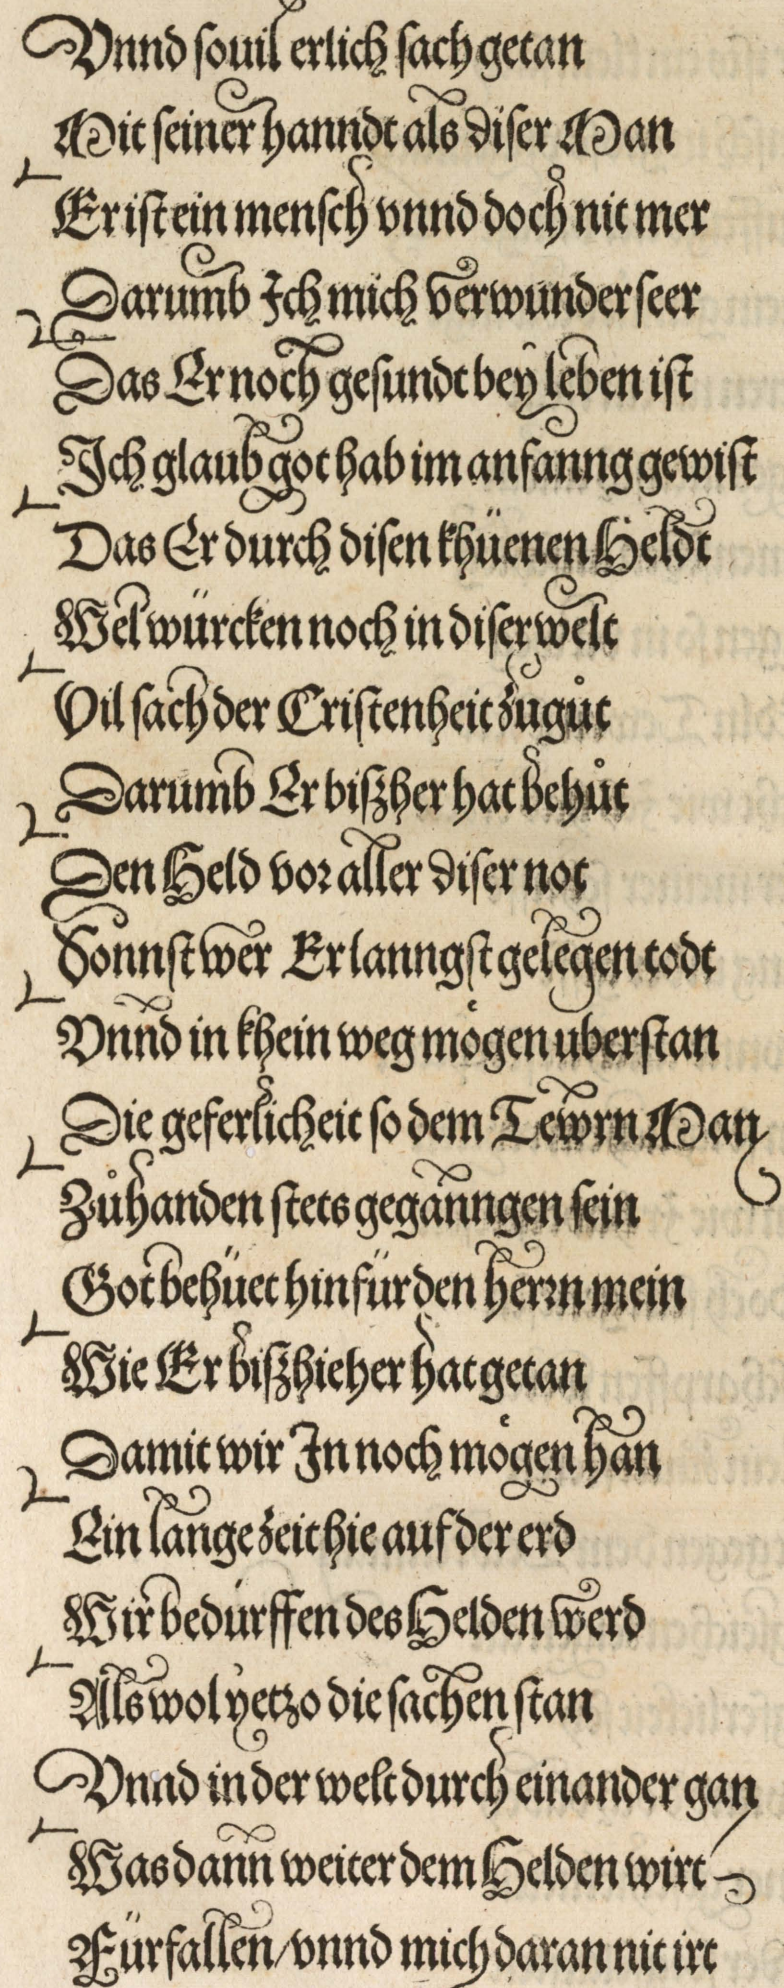 Vnnd souil erlich sach getan
Mit seiner hanndt als diser Man
Er ist ein mensch vnnd doch nit mer
Darumb Ich mich verwunder seer
Das Er noch gesundt bey leben ist
Ich glaub got hab im anfanng gewist
Das Er durch disen khüenen Heldt
Wel würcken noch in diser welt
Vil sach der Cristenheit zugůt
Darumb Er biszher hat behůt
Den Held vor aller diser not
Sonnst wer Er lanngst gelegen todt
Vnnd in khein weg mögen uberstan
Die geferlicheit so dem Tewrn Man
Zůhanden stets geganngen sein
Got behüet hinfür den herrn mein
Wie Er biszhieher hat getan
Damit wir In noch mögen han
Ein lange zeit hie auf der erd
Wir bedürffen des Helden werd
Als wol yetzo die sachen stan
Vnnd in der welt durch einander gan
Was dann weiter dem Helden wirt
Fürfallen / vnnd mich daran nit irt